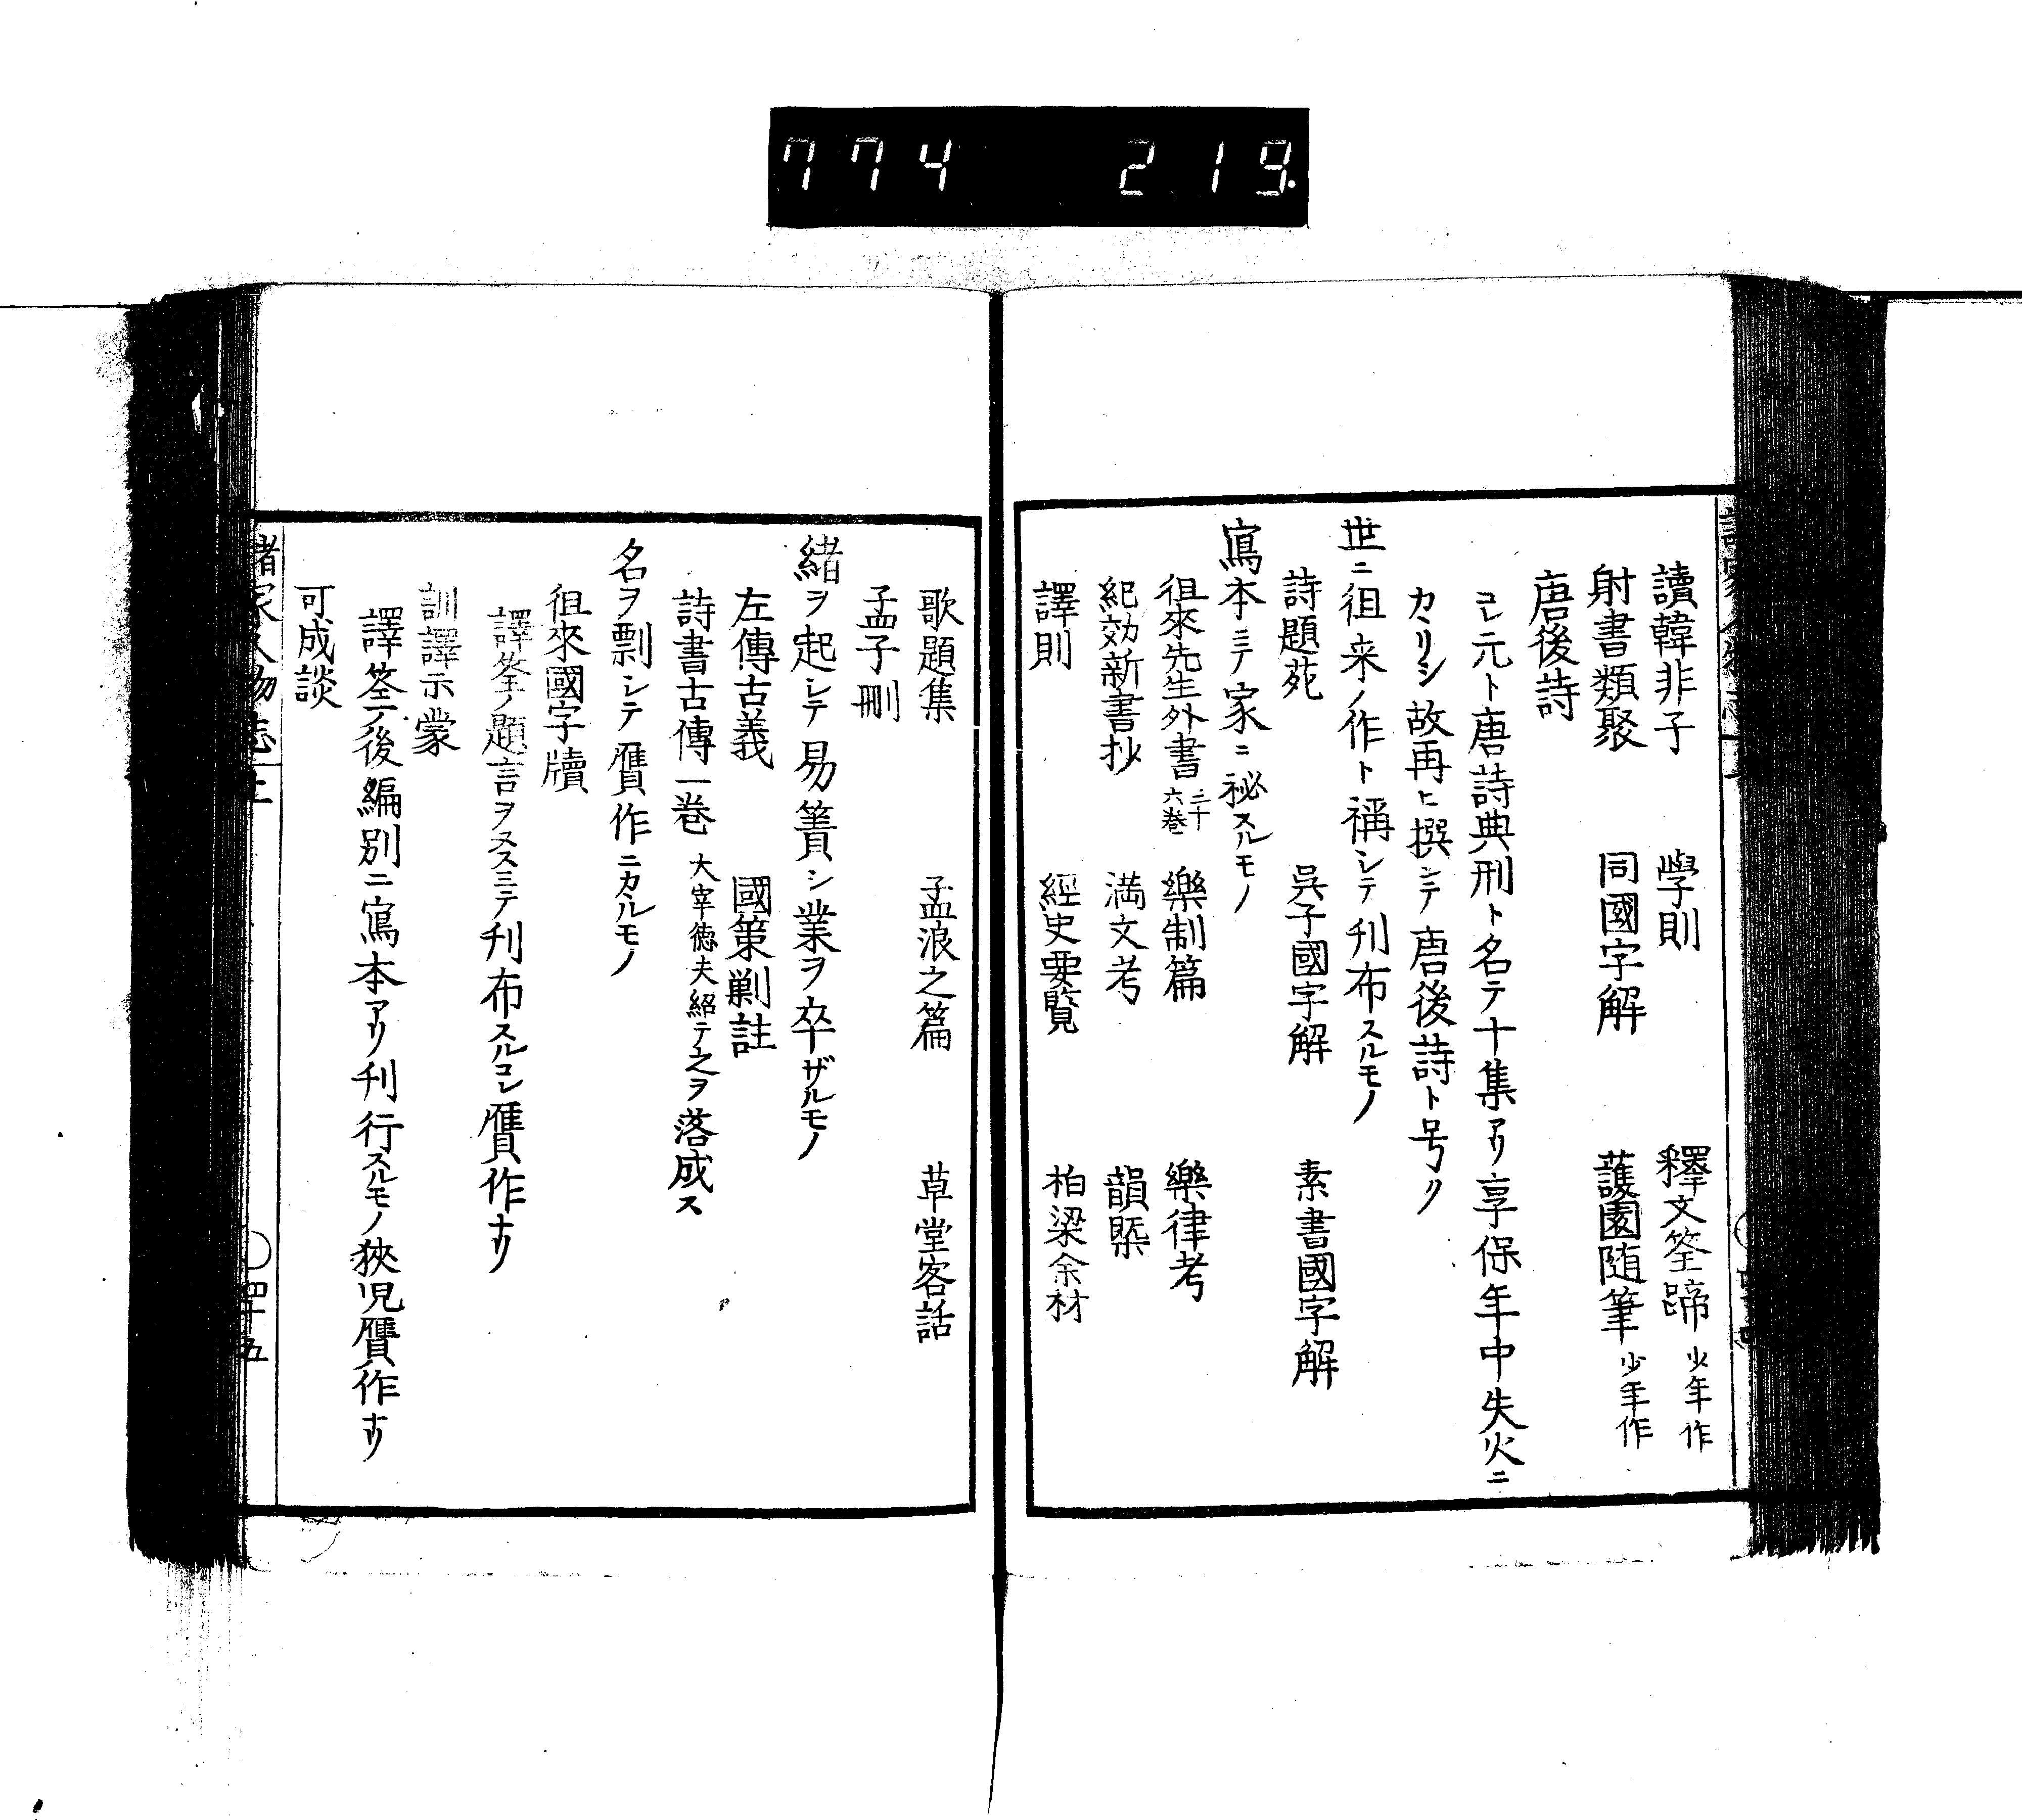 774 219.
讀韓非子 學則 釋文筌蹄 少年作
射書類聚 同國字解 蘐園随筆 少年作
唐後詩
コレ元ト唐詩典刑ト名テ十集アリ享保年中失火ニ
カヽリシ故再ヒ撰シテ唐後詩ト号ク
世ニ徂来ノ作ト稱シテ刋布スルモノ
詩題苑 吳子國字解 素書國字解
寫本ニテ家ニ祕スルモノ
徂來先生外書 三十六巻 樂制篇 樂律考
紀効新書抄 満文考 韻槩
譯則 經史要覧 柏梁余材
歌題集 孟浪之篇 草堂客話
孟子刪
緒ヲ起シテ易簀シ業ヲ卒ザルモノ
左傳古義 國策剿註
詩書古傳一巻 大宰徳夫紹テ之ヲ落成ス
名ヲ剽シテ贋作ニカヽルモノ
徂來國字牘
譯筌ノ題言ヲヌスミテ刋布スルコレ贋作ナリ
訓譯示蒙
譯筌ノ後編別ニ寫本アリ刋行スルモノ狹児贋作ナリ
可成談
諸家人物志 上 〇四十五